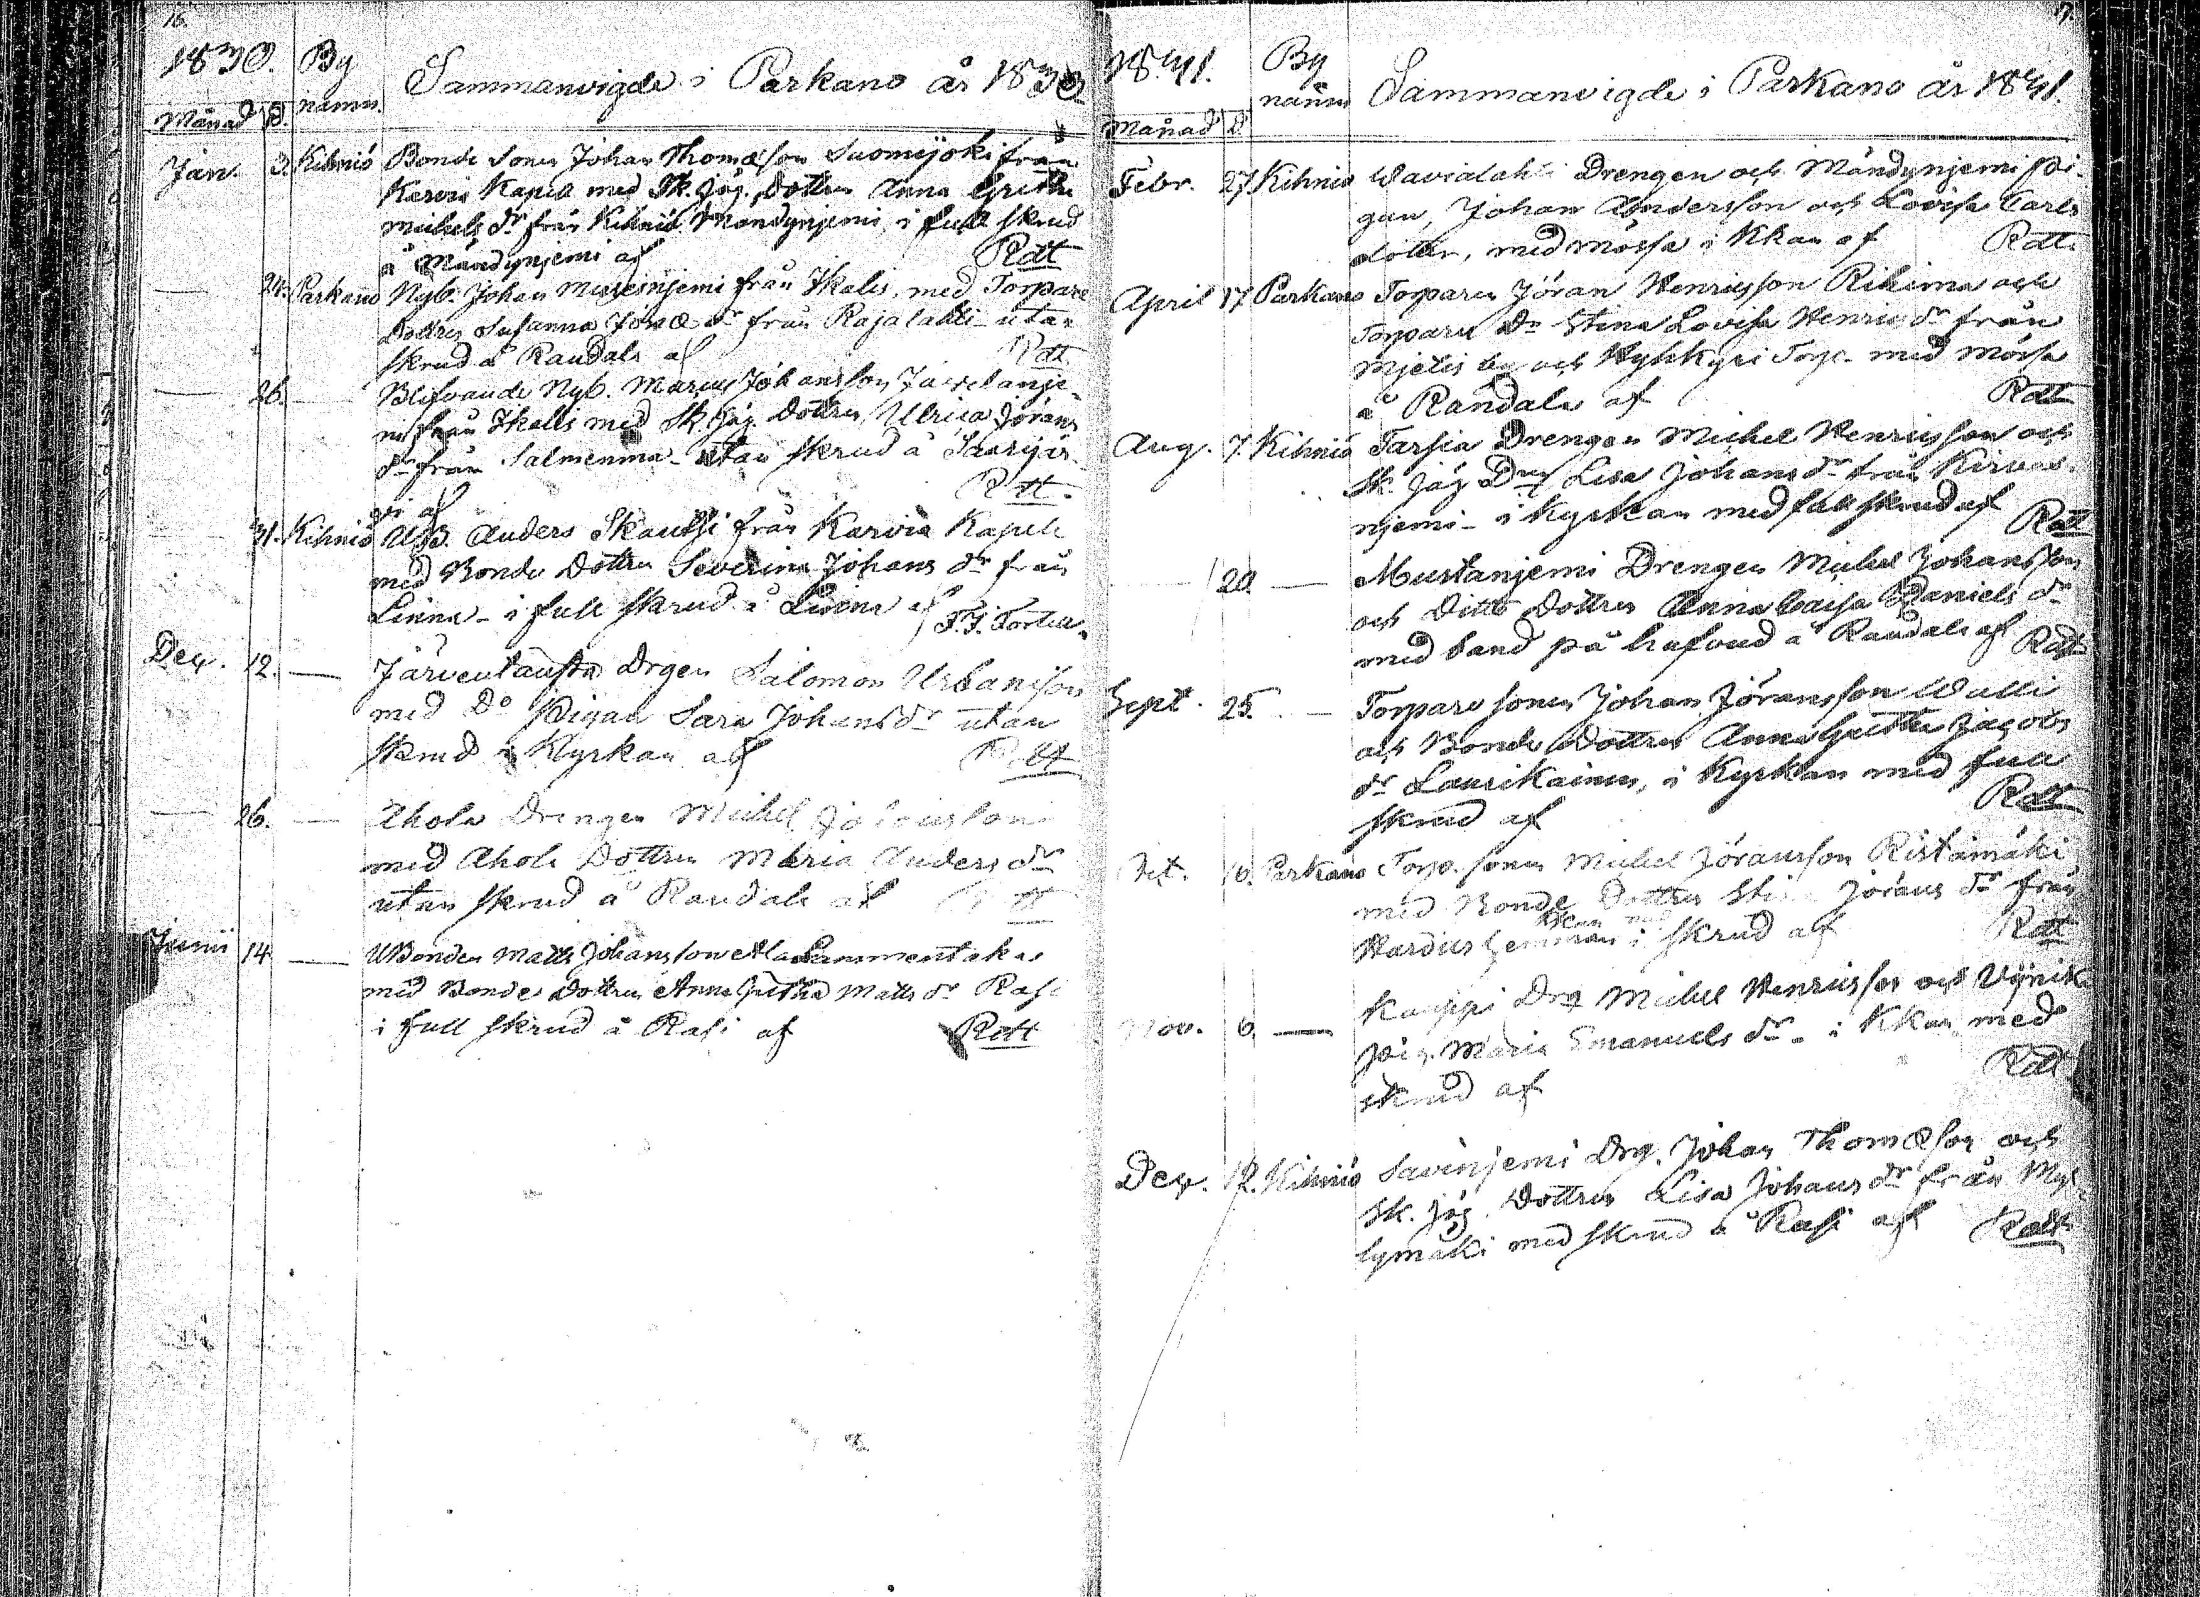 16.
1830. By namn.
Månad D.
Sammanvigde i Parkano år 1830
Jan. 3. Kihniö Bonde Sonen Johan Thomæson Suomijoki från
Karvia Kapell med Sk. jäg. Dottren Anna Gretha
Michels dr från Kihniö Mändynjemi, i full skrud
å Mändynjemi af Rdtt
— 24. Parkano Nyb. Johan Mustainjemi från Ikalis, med Torpare
Dottren Susanna Jonæ dr från Rajalahti utan
skrud å Raudala af Rdtt
— 26. — Blifvande Nyb. Marcus Johansson
från Ikalis med Sk. jäg. Dottren, Ulrica Jörans
dr från Salmenma utan skrud å Saarijär
vi af Rdtt.
31. Kihniö Anders Skantsi från Karvia Kapell
med Bonde Dottren Severina Johans dr från
Linna - i full skrud å Linna af
Dec. 12. — Järventausta Drgen Salomon Urbansson
med Do Pigan Sara Johans dr utan
skrud i Kyrkan af Rdtt
— 26. — Ahola Drengen Michel
med Ahola Dottren Maria Anders dr
utan skrud å Raudala af
Junii 14 — Bonden Matts Johansson Lammentakas
med Bonde Dottren Anna Gretha Matts dr Rasi
i full skrud å Rasi af Rdtt
17.
1841. By namn
Månad D.
Sammanvigde i Parkano år 1841.
Febr. 27. Kihniö Wavialahti Drengen och Mändynjemi Pi-
gan, Johan Andersson och Lovisa Carls
dotter, med mössa i Kkan af Rdtt.
April 17 Parkano Torparen Jöran Henricsson Rihima och
Torpare Dr Stina Lovisa Henrics dr från
Mjetis by och Torp. med mössa
å Raudala af Rdtt
Aug. 7. Kihniö Tarsia Drengen Michel Henricsson och
Sk. jäg Dr Lisa Johans dr från Kirves-
njemi - i kyrkan med full skrud af Rdtt
— 20. — Mustanjemi Drengen Michel Johansson
och Ditto Dottren Anna Caisa Daniels dr
med band på hufvud å Raudala af Rdtt
Sept. 25. — Torpare sonen Johan Jöransson Walli
och Bonde Dottren Anna Gretha Jacobs
dr Laurikainen, i Kyrkan med full
skrud af Rdtt
Oct. Parkano Torp. sonen Michel Jöransson Ristamäki
med Bonde Dottren Jörans dr från
i skrud af Rdtt
Nov. 6. — Kauppi Drg Michel Henricsson och
Pig. Maria Emanuels dr - i Kkan, med
skrud af Rdtt
Dec. 12. Kihniö Savinjemi Drg. Johan Thomæson och
Sk. jäg. Dottren Lisa Johans dr från Myl-
lymäki med skrud å Rasi af Rdtt